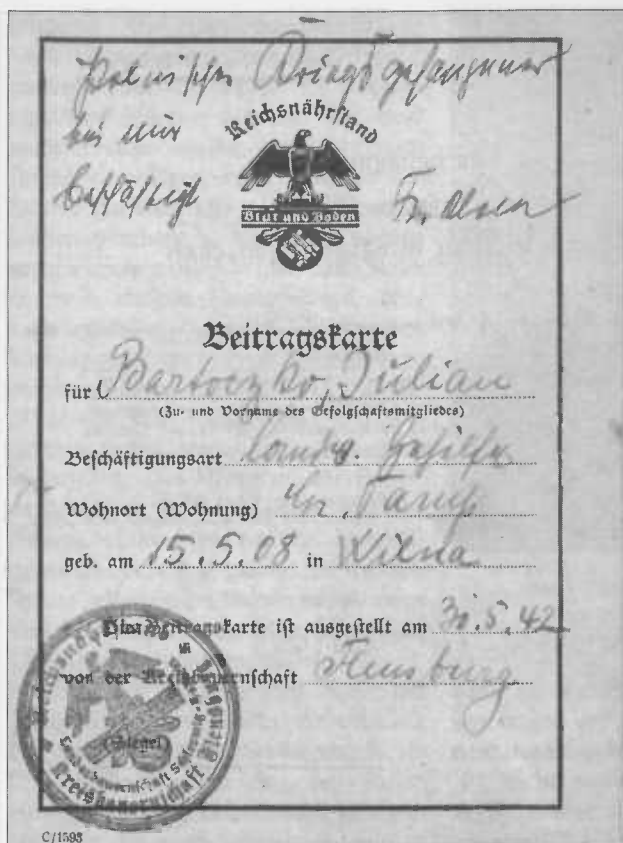 Polnischer Kriegsgefangener
bei mir
beschäftigt
Reichsnährstand
Blut und Boden
Beitragskarte
für Bartoczko, Julian
(Zu- und Vorname des Gefolgschaftsmitgliedes)
Beschäftigungsart landw. Gehilfe
Wohnort (Wohnung)
geb. am 15.5.08 in Wilna
Diese Beitragskarte ist ausgestellt am 30.5.42
von der Kreisbauernschaft Flensburg
(Siegel)
C/1593